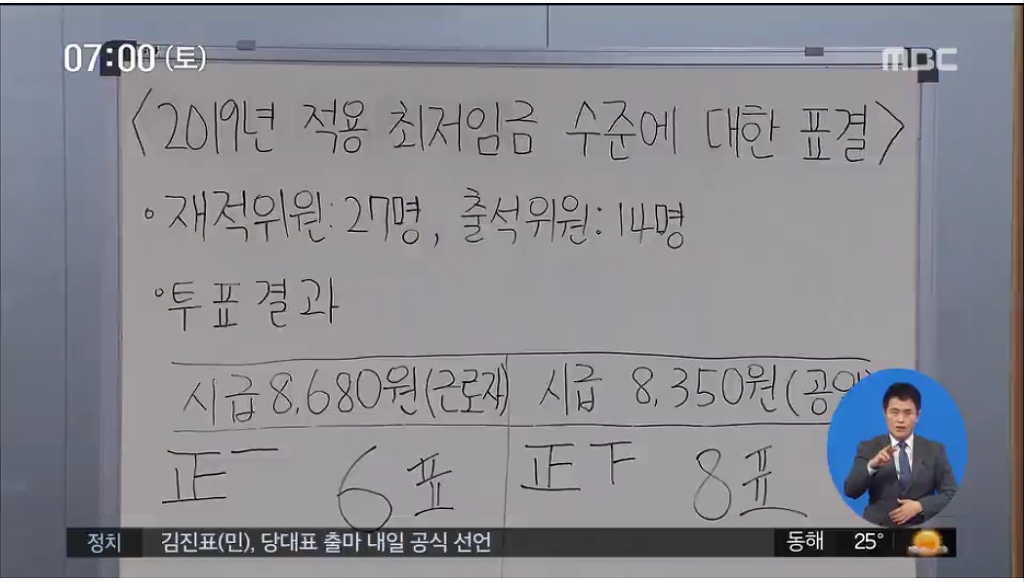 07:00 (토)
MBC
<2019년 적용 최저임금 수준에 대한 표결>
• 재적위원: 27명, 출석위원: 14명
• 투표결과
시급 8,680원(근로자) 시급 8,350원(공익)
正一 6표 正下 8표
정치 김진표(민), 당대표 출마 내일 공식 선언 동해 25°